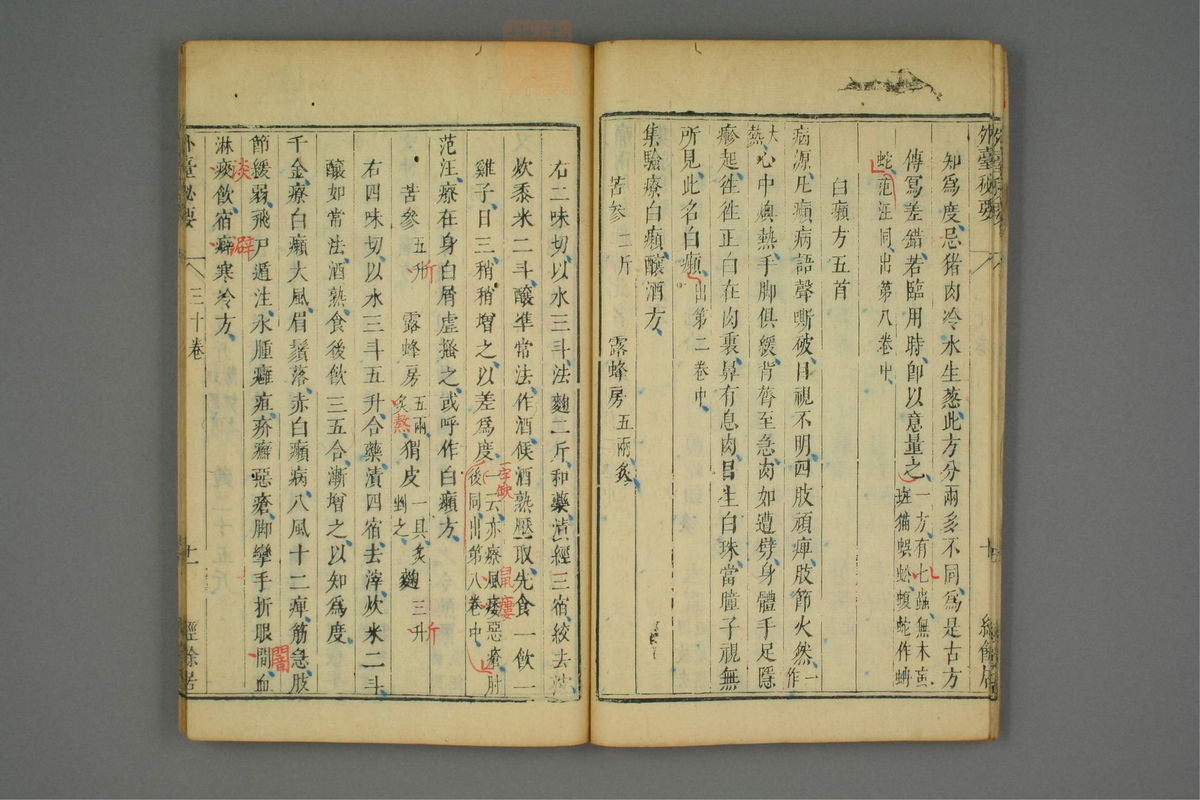 知爲度忌猪肉冷水生葱此方分兩多不同爲是古方
傳寫差錯若臨用時卽以意量之一方有七蟲無木䖟
斑猫蜈蚣蝮蛇作蟒
蛇范汪同出第八卷中
白癩方五首
病源凡癩病語聲嘶破目視不明四肢頑痺肢節火然一作
大熱心中燠熱手脚俱緩背膂至急肉如遭劈身體手足隱
疹起徃徃正白在肉裏鼻有息肉目生白珠當瞳子視無
所見此名白癩出第二卷中
集驗療白癩釀酒方
苦參二斤 露蜂房五兩炙
外臺祕要
右二味切以水三斗法麴二斤和藥漬經三宿絞去滓
炊黍米二斗釀準常法作酒候酒熟壓取先食一飮一
雞子日三稍稍增之以差爲度一云亦療風瘘惡瘡肘
後同出第八卷中
一字缺
鼠瘻
范汪療在身白屑虛搔之或呼作白癩方
苦參五升 露蜂房五兩炙 猬皮一具炙剉之 麴三升
斤
熬
斤
右四味切以水三斗五升合藥漬四宿去滓炊米二斗
釀如常法酒熟食後飮三五合漸增之以知爲度
千金療白癩大風眉鬚落赤白癩病八風十二痺筋急肢
節緩弱飛尸遁注水腫癰疽疥癬惡瘡脚攣手折眼闇血
闇
淋痰飮宿癖寒冷方
淡
澼
外臺祕要 三十卷 十一 經餘居